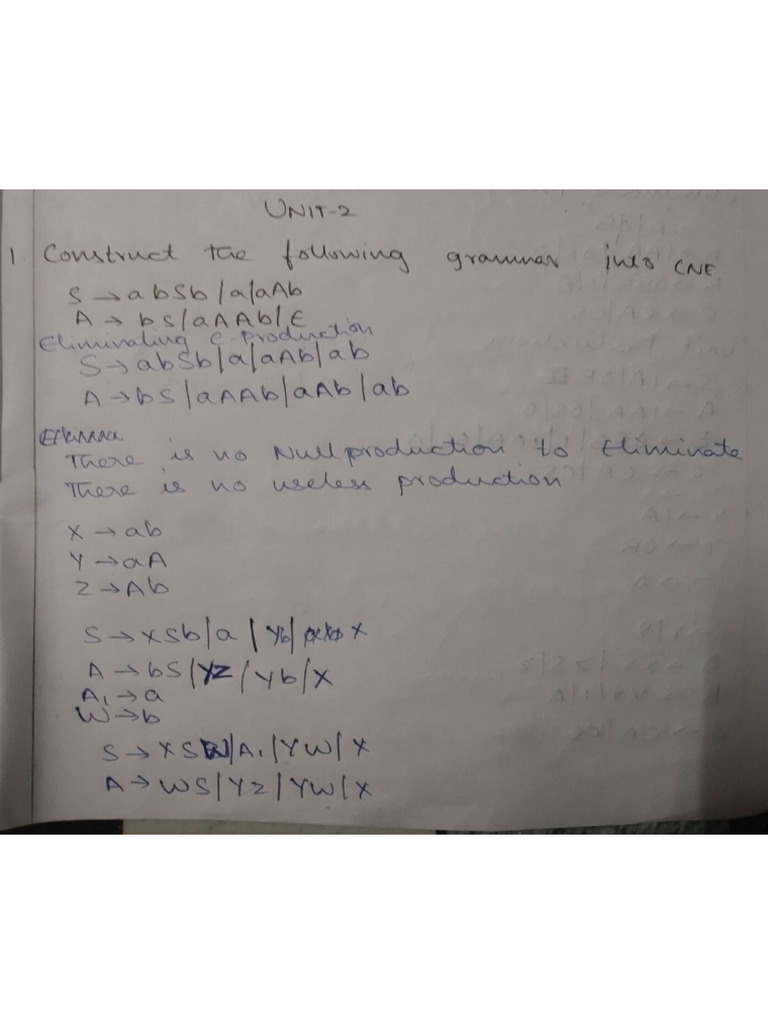 UNIT-2
1 Construct the following grammar into CNF
S → abSb/a/aAb
A → bS/aAAb/ε
Eliminating ε production
S → abSb/a/aAb/ab
A → bS/aAAb/aAb/ab
There is no Nullproduction to Eliminate
There is no useless production
X → ab
Y → aA
Z → Ab
S → XSb/a/Yb/X
A → bS/YZ/Yb/X
A₁ → a
W → b
S → XSW/A₁/YW/X
A → WS/YZ/YW/X